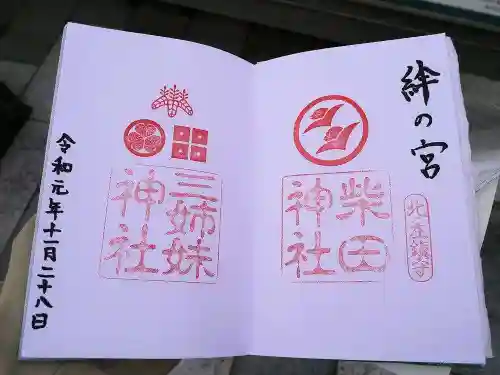 絆の宮
北庄鎮守
柴田
神社
三姉妹
神社
令和元年十一月二十八日